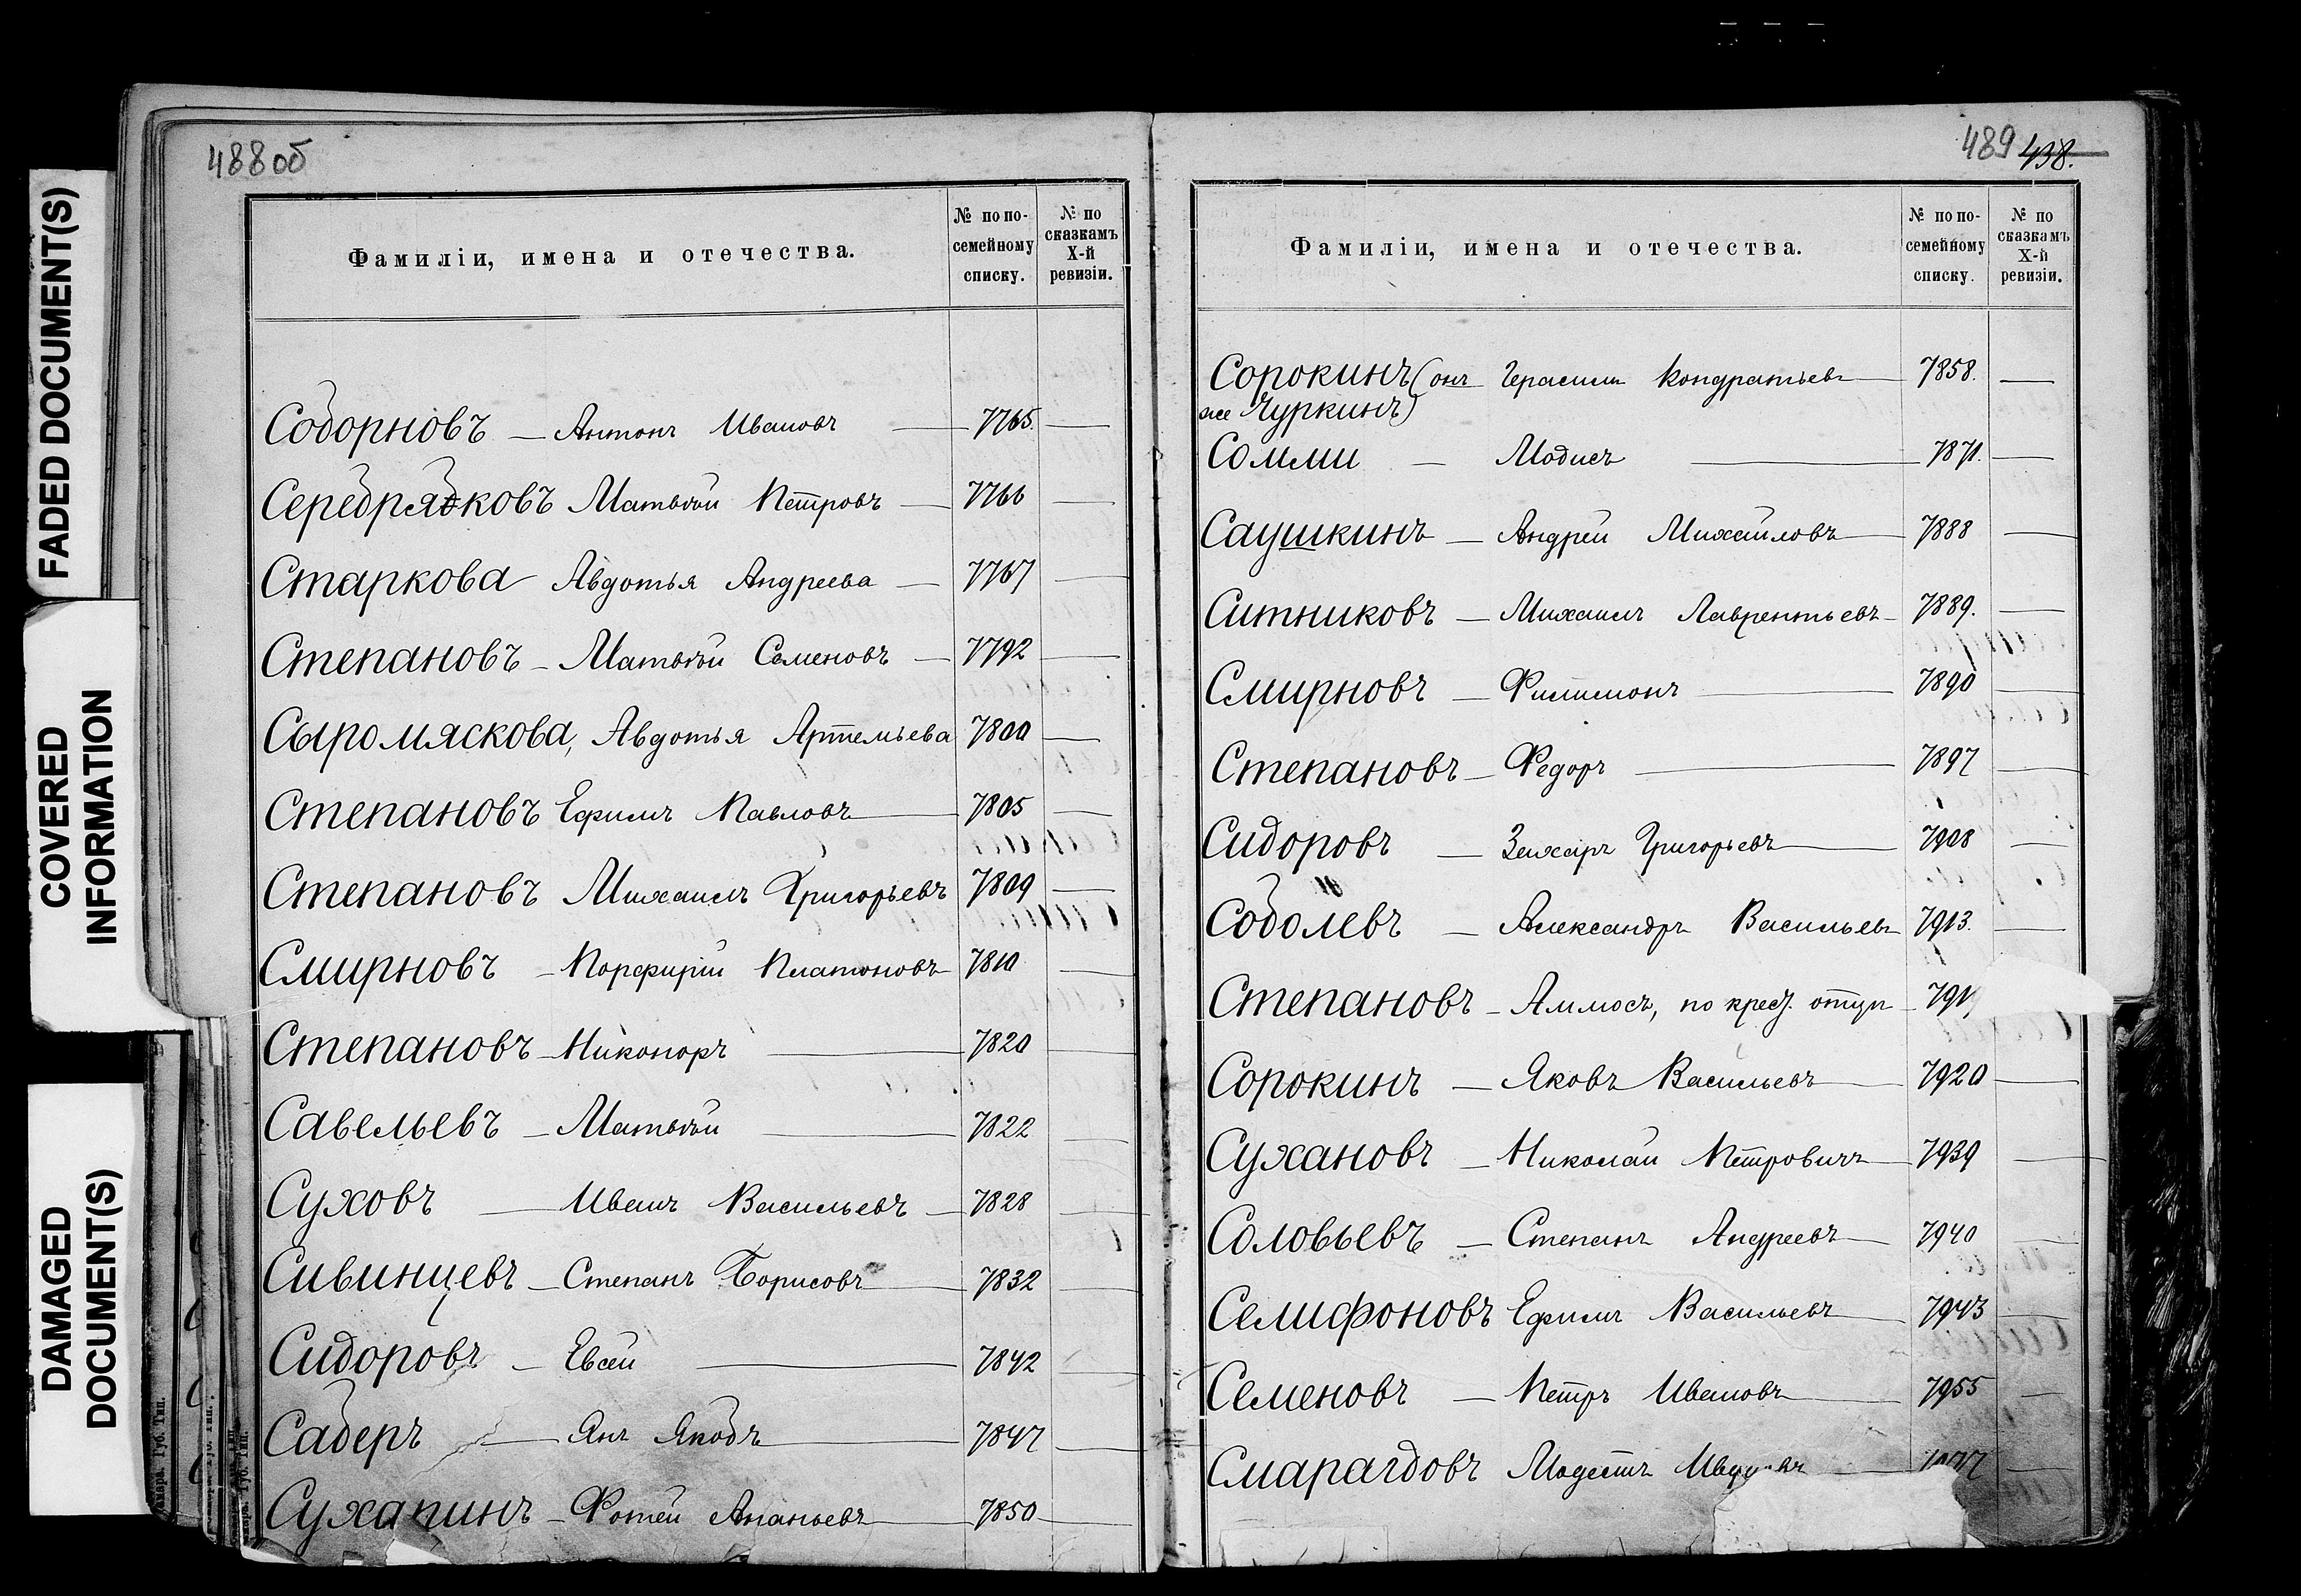 FADED DOCUMENT(S)
COVERED
INFORMATION
DAMAGED
DOCUMENT(S)
488об
Фамиліи, имена и отечества.
№ по по-
семейному
списку.
№ по
сказкамъ
X-й
ревизіи.
Соборновъ — Антонъ Ивановъ — 7765. —
Серебряковъ Матвѣй Петровъ — 7766 —
Старкова Авдотья Андреева — 7767 —
Степановъ — Матвѣй Семеновъ — 7792 —
Сыромяскова, Авдотья Артемьева 7800 —
Степановъ Ефимъ Павловъ — 7805 —
Степановъ Михаилъ Григорьевъ 7809 —
Смирновъ — Порфирій Платоновъ 7810 —
Степановъ — Никоноръ — 7820 —
Савельевъ — Матвѣй — 7822 —
Суховъ — Иванъ Васильевъ — 7828 —
Сивинцевъ — Степанъ Борисовъ — 7832 —
Сидоровъ — Евсей — 7842 —
Саберъ — Янъ Якобъ — 7847 —
Сухапинъ — Фотей Ананьевъ — 7850 —
489 438.
Фамиліи, имена и отечества.
№ по по-
семейному
списку.
№ по
сказкамъ
X-й
ревизіи.
Сорокинъ (онъ Герасимъ Кондратьевъ — 7858. —
же Чуркинъ)
Сомми — Модисъ — 7871. —
Саушкинъ — Андрей Михайловъ — 7888 —
Ситниковъ — Михаилъ Лаврентьевъ — 7889. —
Смирновъ — Филимонъ — 7890 —
Степановъ — Федоръ — 7897 —
Сидоровъ — Захаръ Григорьевъ — 7908 —
Соболевъ — Александръ Васильевъ 7913. —
Степановъ — Аммосъ, по крест. отцу — 791
Сорокинъ — Яковъ Васильевъ — 7920 —
Сухановъ — Николай Петровичъ — 7939 —
Соловьевъ — Степанъ Андреевъ — 7940 —
Селифоновъ Ефимъ Васильевъ — 7943 —
Семеновъ — Петръ Ивановъ — 7955 —
Смарагдовъ Модестъ —